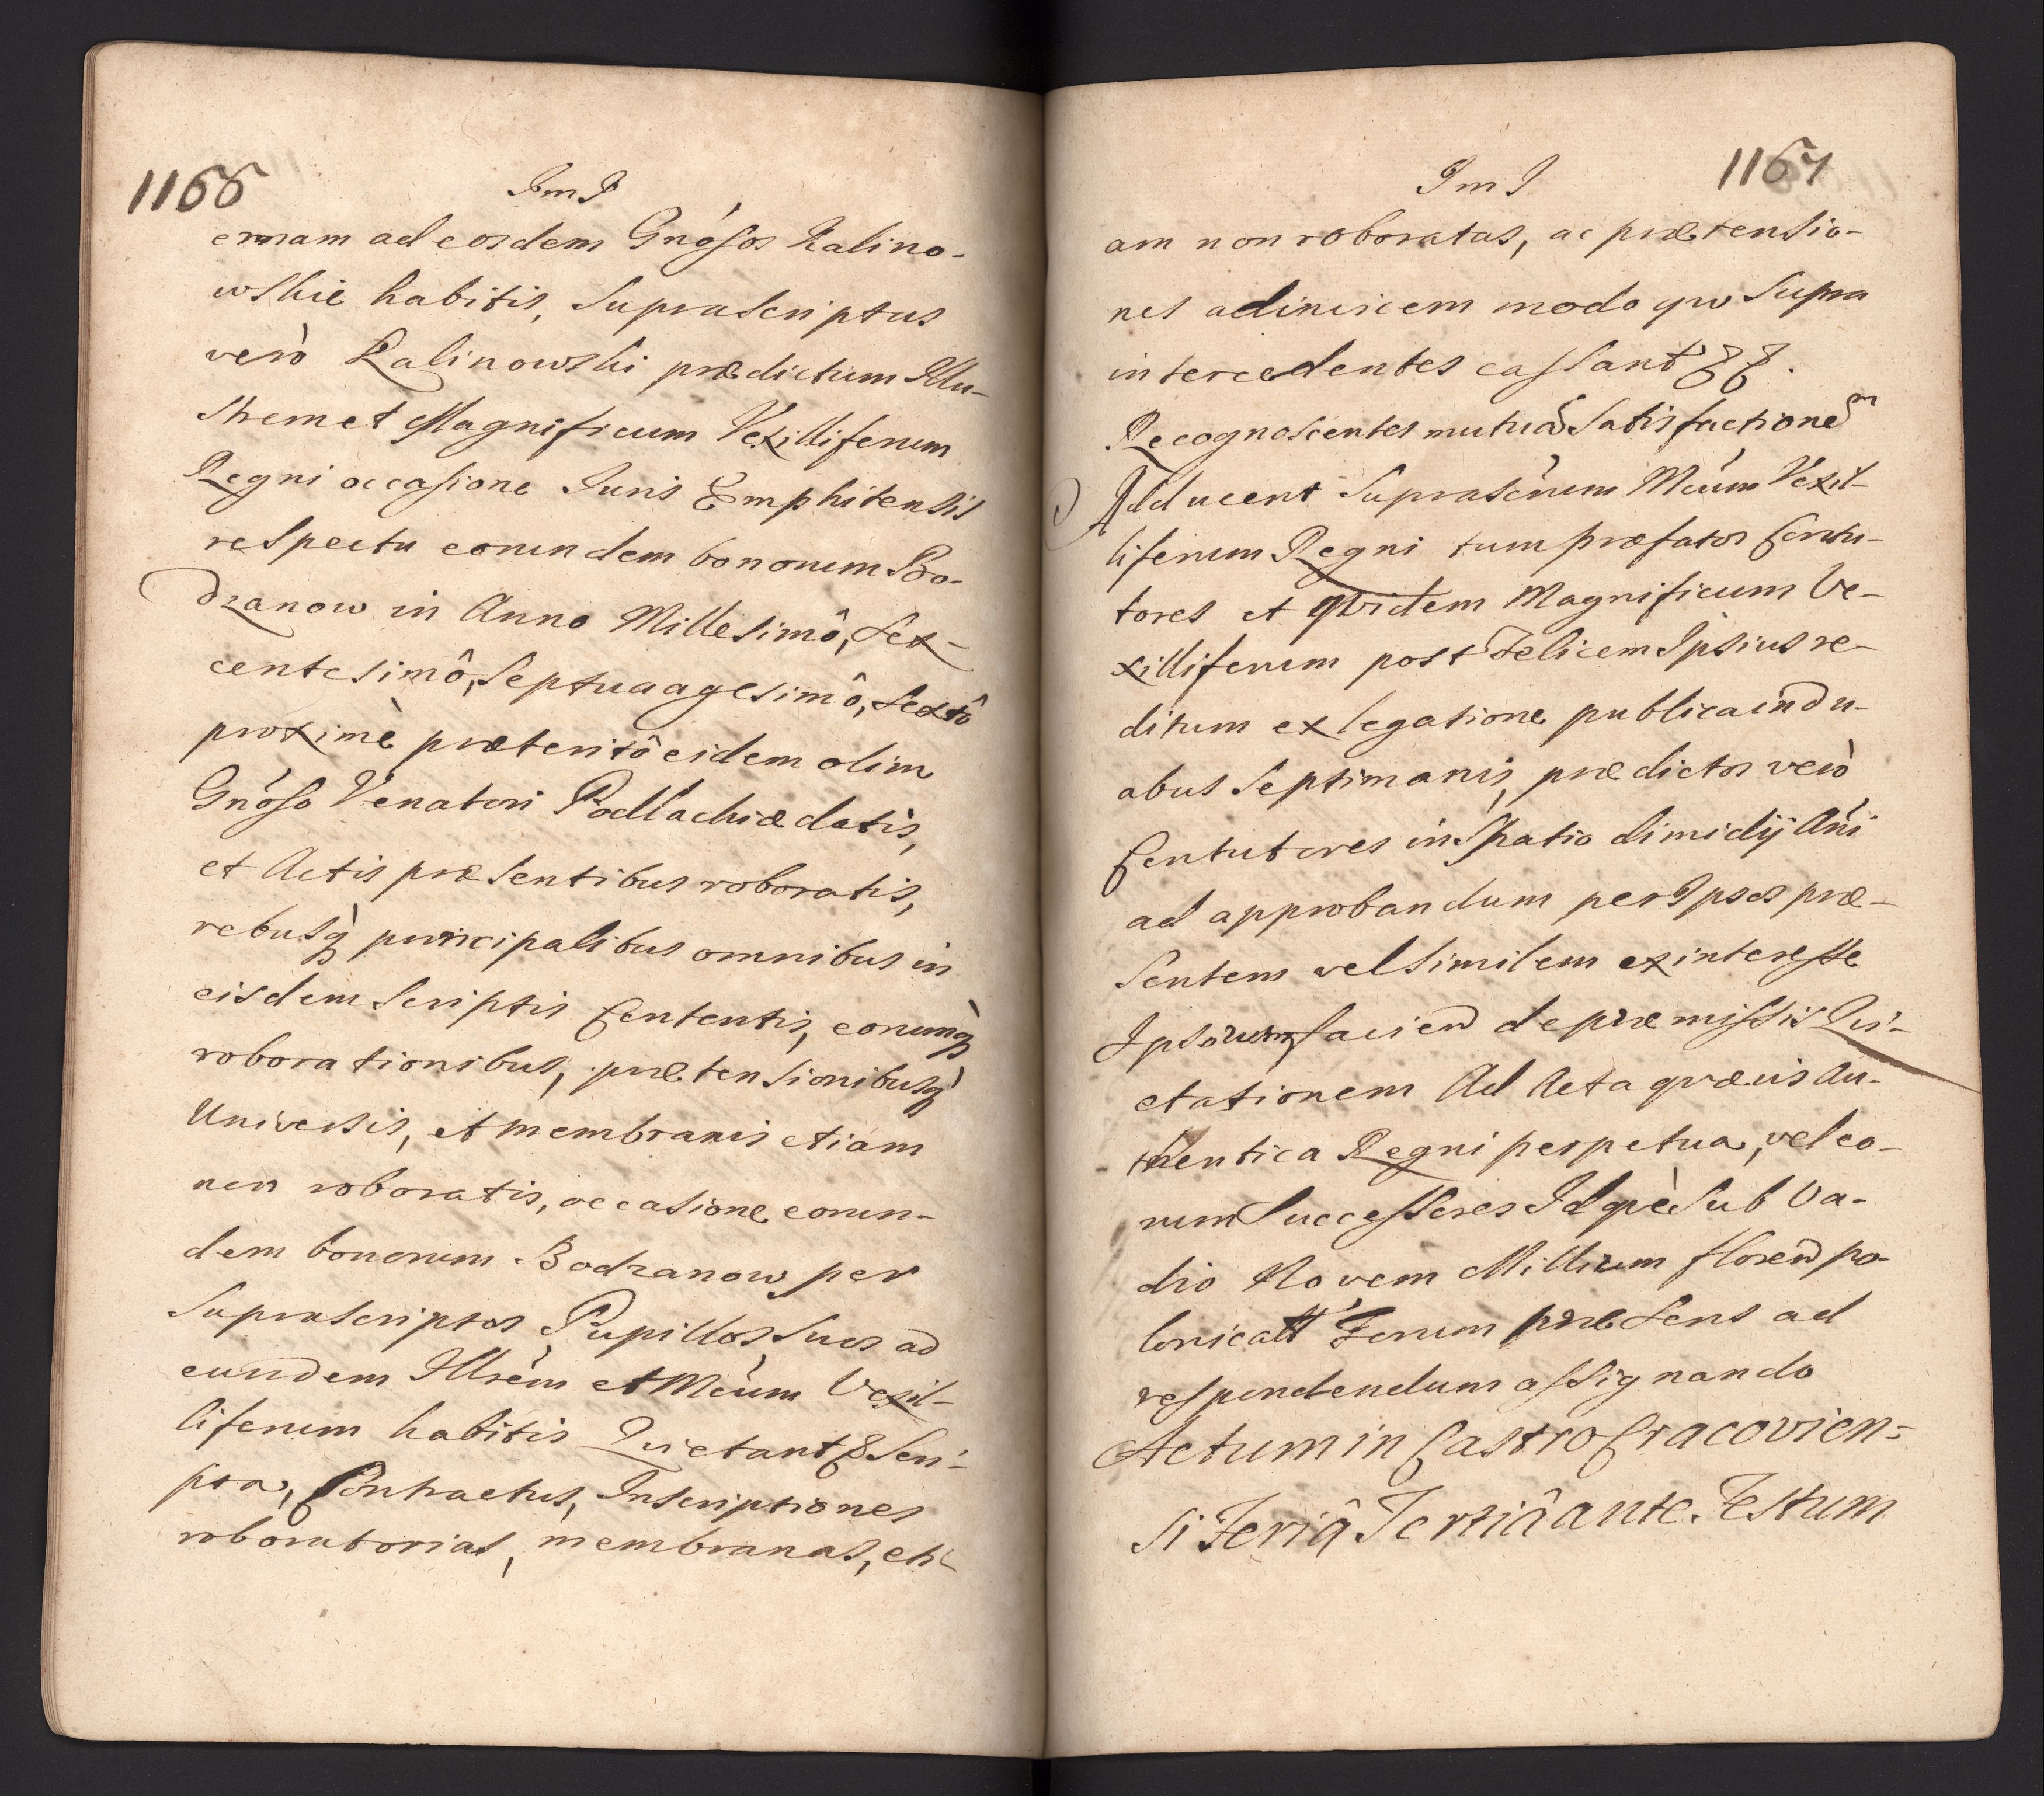 1166
JmJ
ernam ad eosdem Gnósos Kalino-
wskie habitis, Suprascriptus
verò Kalinowski prædictum Illu-
strem et Magnificum Vexilliferum
Regni occasione Juris Emphitensis
respectu eorundem bonorum Bo-
dzanow in Anno Millesimô, Sex-
centesimô, Septuaagesimô, Sextô
proximè præteritô eidem olim
Gnóso Venatori Podlachiæ datis,
et Actis præsentibus roboratis,
rebusq principalibus omnibus in
eisdem Scriptis Contentis, eorumq
roborationibus, prætensionibusq
Universis, et membranis etiam
non roboratis, occasione eorun-
dem bonorum Bodzanow per
Suprascriptos Pupillos Suos ad
eundem Illrem et Mcum Vexil-
liferum habitis Quietant & Scri-
pta, Contractus, Inscriptiones
roboratorias, membranas, eti-
1167
JmJ
am non roboratas, ac prætensio-
nes adinvicem modo quo Supra
intercedentes cassant &&.
Recognoscentes mutuã Satisfactionem
Adducent Suprascrium Mcum Vexil-
liferum Regni tum præfatos Contu-
tores et quidem Magnificum Ve-
xilliferum post Felicem Ipsius re-
ditum ex legatione publica in du-
abus Septimanis, prædictos verò
Contutores in Spatio dimidij Ani
ad approbandum per Ipsos præ-
sentem vel Similem ex interesse
Ipsorum faciend de præmissis Qui-
etationem Ad Acta quævis Au-
thentica Regni perpetua, vel eo-
rum Successores Idquè Sub Va-
dio Novem Millium floren po-
lonicatt Forum præsens ad
respondendum assignando
Actum in Castro Cracovien=
si Feriâ Tertiâ ante Festum